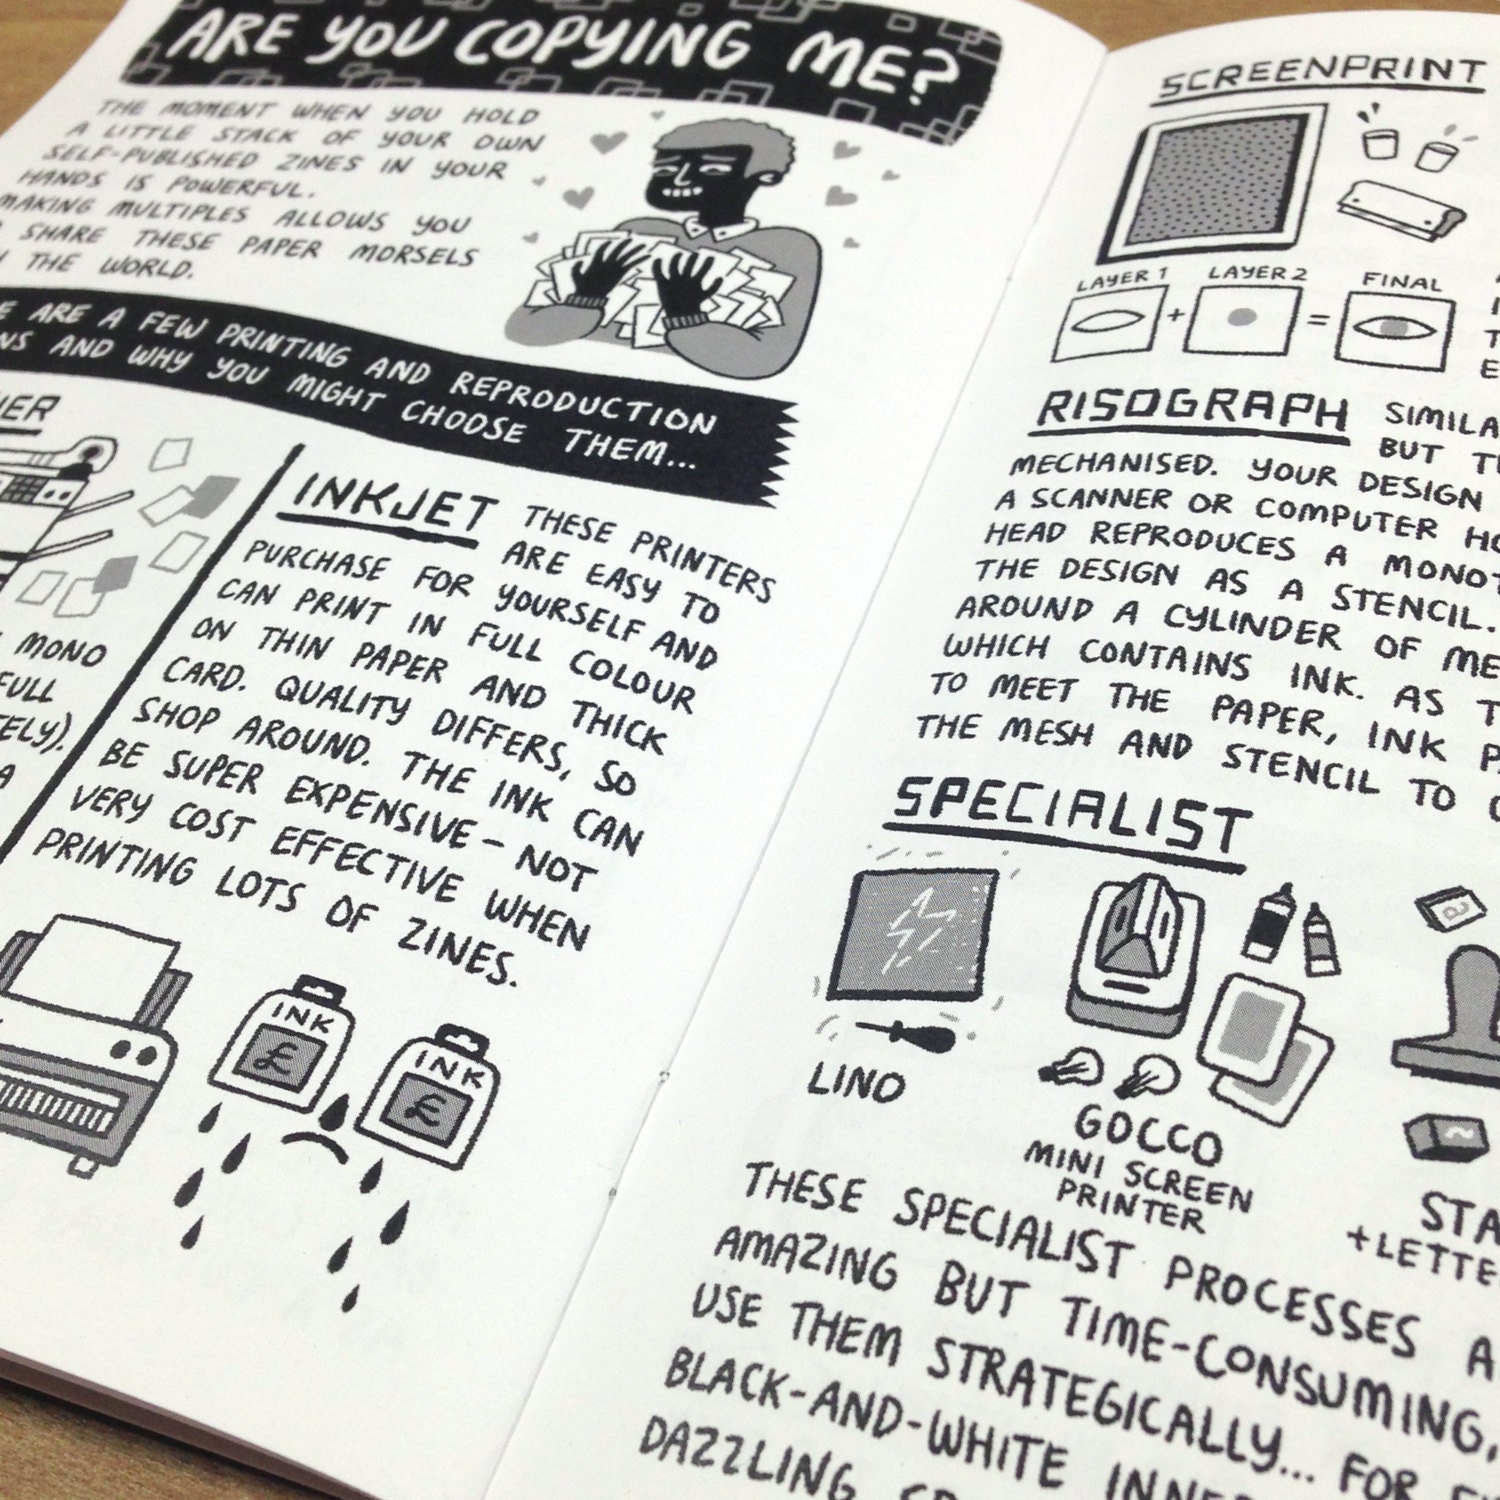 ARE YOU COPYING ME?
THE MOMENT WHEN YOU HOLD
A LITTLE STACK OF YOUR OWN
SELF-PUBLISHED ZINES IN YOUR
HANDS IS POWERFUL.
MAKING MULTIPLES ALLOWS YOU
SHARE THESE PAPER MORSELS
THE WORLD.
ARE A FEW PRINTING AND REPRODUCTION
AND WHY YOU MIGHT CHOOSE THEM...
MONO
INKJET THESE PRINTERS
ARE EASY TO
PURCHASE FOR YOURSELF AND
CAN PRINT IN FULL COLOUR
ON THIN PAPER AND THICK
CARD. QUALITY DIFFERS, SO
SHOP AROUND. THE INK CAN
BE SUPER EXPENSIVE - NOT
VERY COST EFFECTIVE WHEN
PRINTING LOTS OF ZINES.
INK
£
INK
£
SCREENPRINT
LAYER 1
LAYER 2
FINAL
+
=
RISOGRAPH
BUT
MECHANISED. YOUR DESIGN
A SCANNER OR COMPUTER
HEAD REPRODUCES A
THE DESIGN AS A STENCIL.
AROUND A CYLINDER OF
WHICH CONTAINS INK. AS
TO MEET THE PAPER, INK
THE MESH AND STENCIL TO
SPECIALIST
LINO
GOCCO
MINI SCREEN
PRINTER
THESE SPECIALIST PROCESSES
AMAZING BUT TIME-CONSUMING,
USE THEM STRATEGICALLY... FOR
BLACK-AND-WHITE
DAZZLING